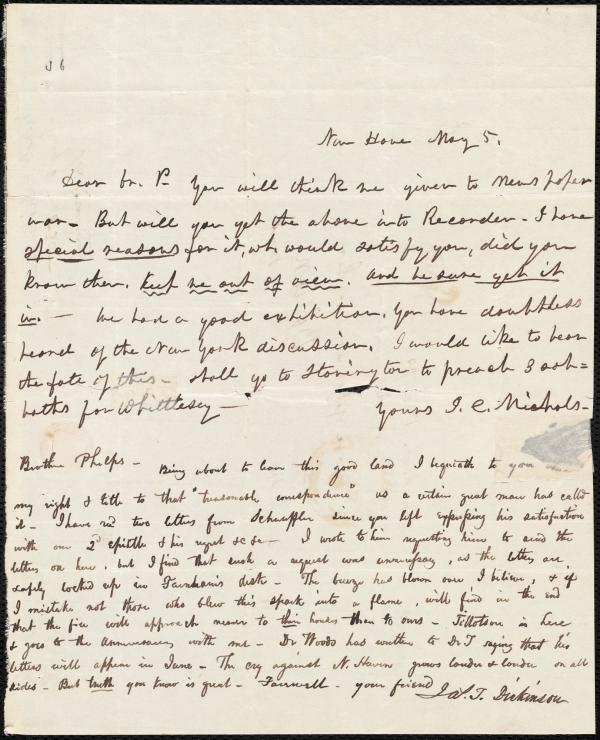 36
New Haven May 5.
Dear br. P. You will think me given to newspaper
war. But will you get the above into Recorder. I have
special reasons for it, wh. would satisfy you, did you
know them. Keep me out of view. And be sure get it
in. — We had a good exhibition. You have doubtless
heard of the New York discussion. I would like to hear
the fate of this. shall go to Stonington to preach 3 sab=
baths for Whittlesey —
Yours J. C. Nichols —
Brother Phelps — Being about to leave this good land I bequeath to you
my right & title to that "treasonable correspondence" as a certain great man has called
it — I have rd two letters from Schauffler since you left expressing his satisfaction
with our 2d epistle & his regret &c &c — I wrote to him requesting him to send the
letters on here, but I find that such a request was unnecessary, as the letters are
safely locked up in Farnham's desk — The breeze has blown over I believe, & if
I mistake not those who blew this spark into a flame, will find in the end
that the fire will approach nearer to their houses than to ours — Tillotson is here
& goes to the Anniversary with me — Dr Woods has written to Dr T saying that his
letters will appear in June — The cry against N. Haven grows louder & louder on all
sides — But truth you know is great — Farewell — your friend
J. W. T. Dickinson